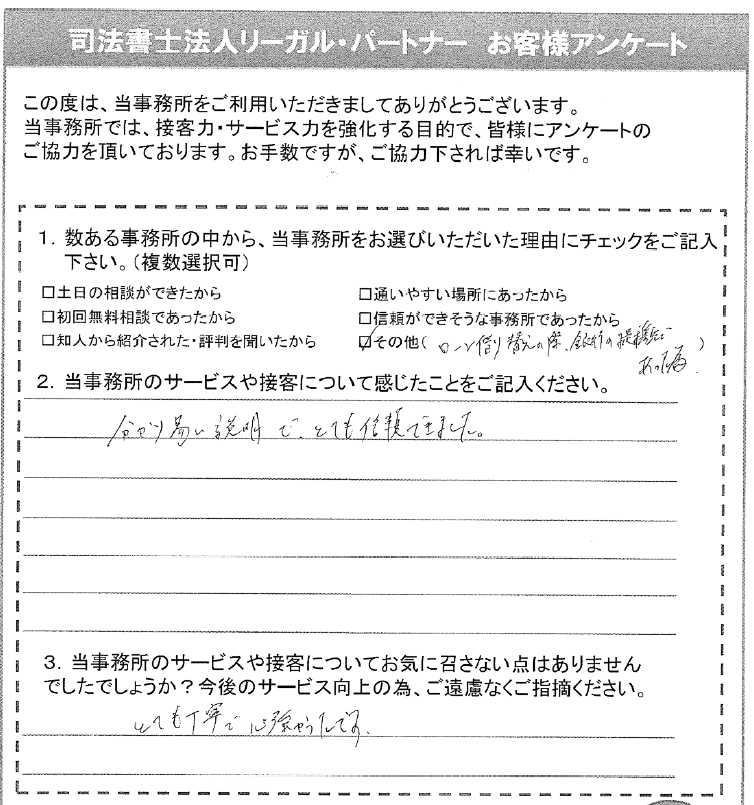 司法書士法人リーガル・パートナー お客様アンケート
この度は、当事務所をご利用いただきましてありがとうございます。
当事務所では、接客力・サービス力を強化する目的で、皆様にアンケートの
ご協力を頂いております。お手数ですが、ご協力下されば幸いです。
1. 数ある事務所の中から、当事務所をお選びいただいた理由にチェックをご記入
下さい。(複数選択可)
□土日の相談ができたから
□通いやすい場所にあったから
□初回無料相談であったから
□信頼ができそうな事務所であったから
□知人から紹介された・評判を聞いたから
☑その他( ローン借り替えの際、銀行の提携先で )
あった為.
2. 当事務所のサービスや接客について感じたことをご記入ください。
分かり易い説明で、とても信頼できました。
3. 当事務所のサービスや接客についてお気に召さない点はありません
でしたでしょうか?今後のサービス向上の為、ご遠慮なくご指摘ください。
とても丁寧で心強かったです.